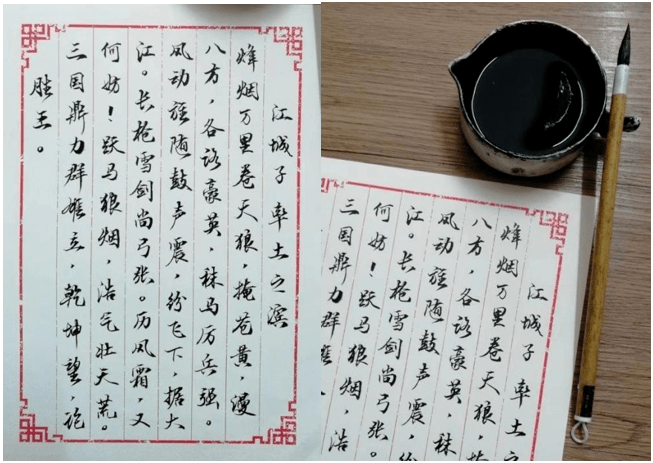 江城子 率土之滨
烽烟万里卷天狼，掩苍黄，漫
八方，各路豪英，秣马厉兵强。
风动旌随鼓声震，纷飞下，据大
江。长枪雪剑尚弓张。历风霜，又
何妨！跃马狼烟，浩气壮天荒。
三国鼎力群雄立，乾坤望，论
胜王。
江城子 率土之
烽烟万里卷天狼，
八方，各路豪英，秣
风动旌随鼓声震，纷
江。长枪雪剑尚弓张。
何妨！跃马狼烟，浩
三国鼎力群雄